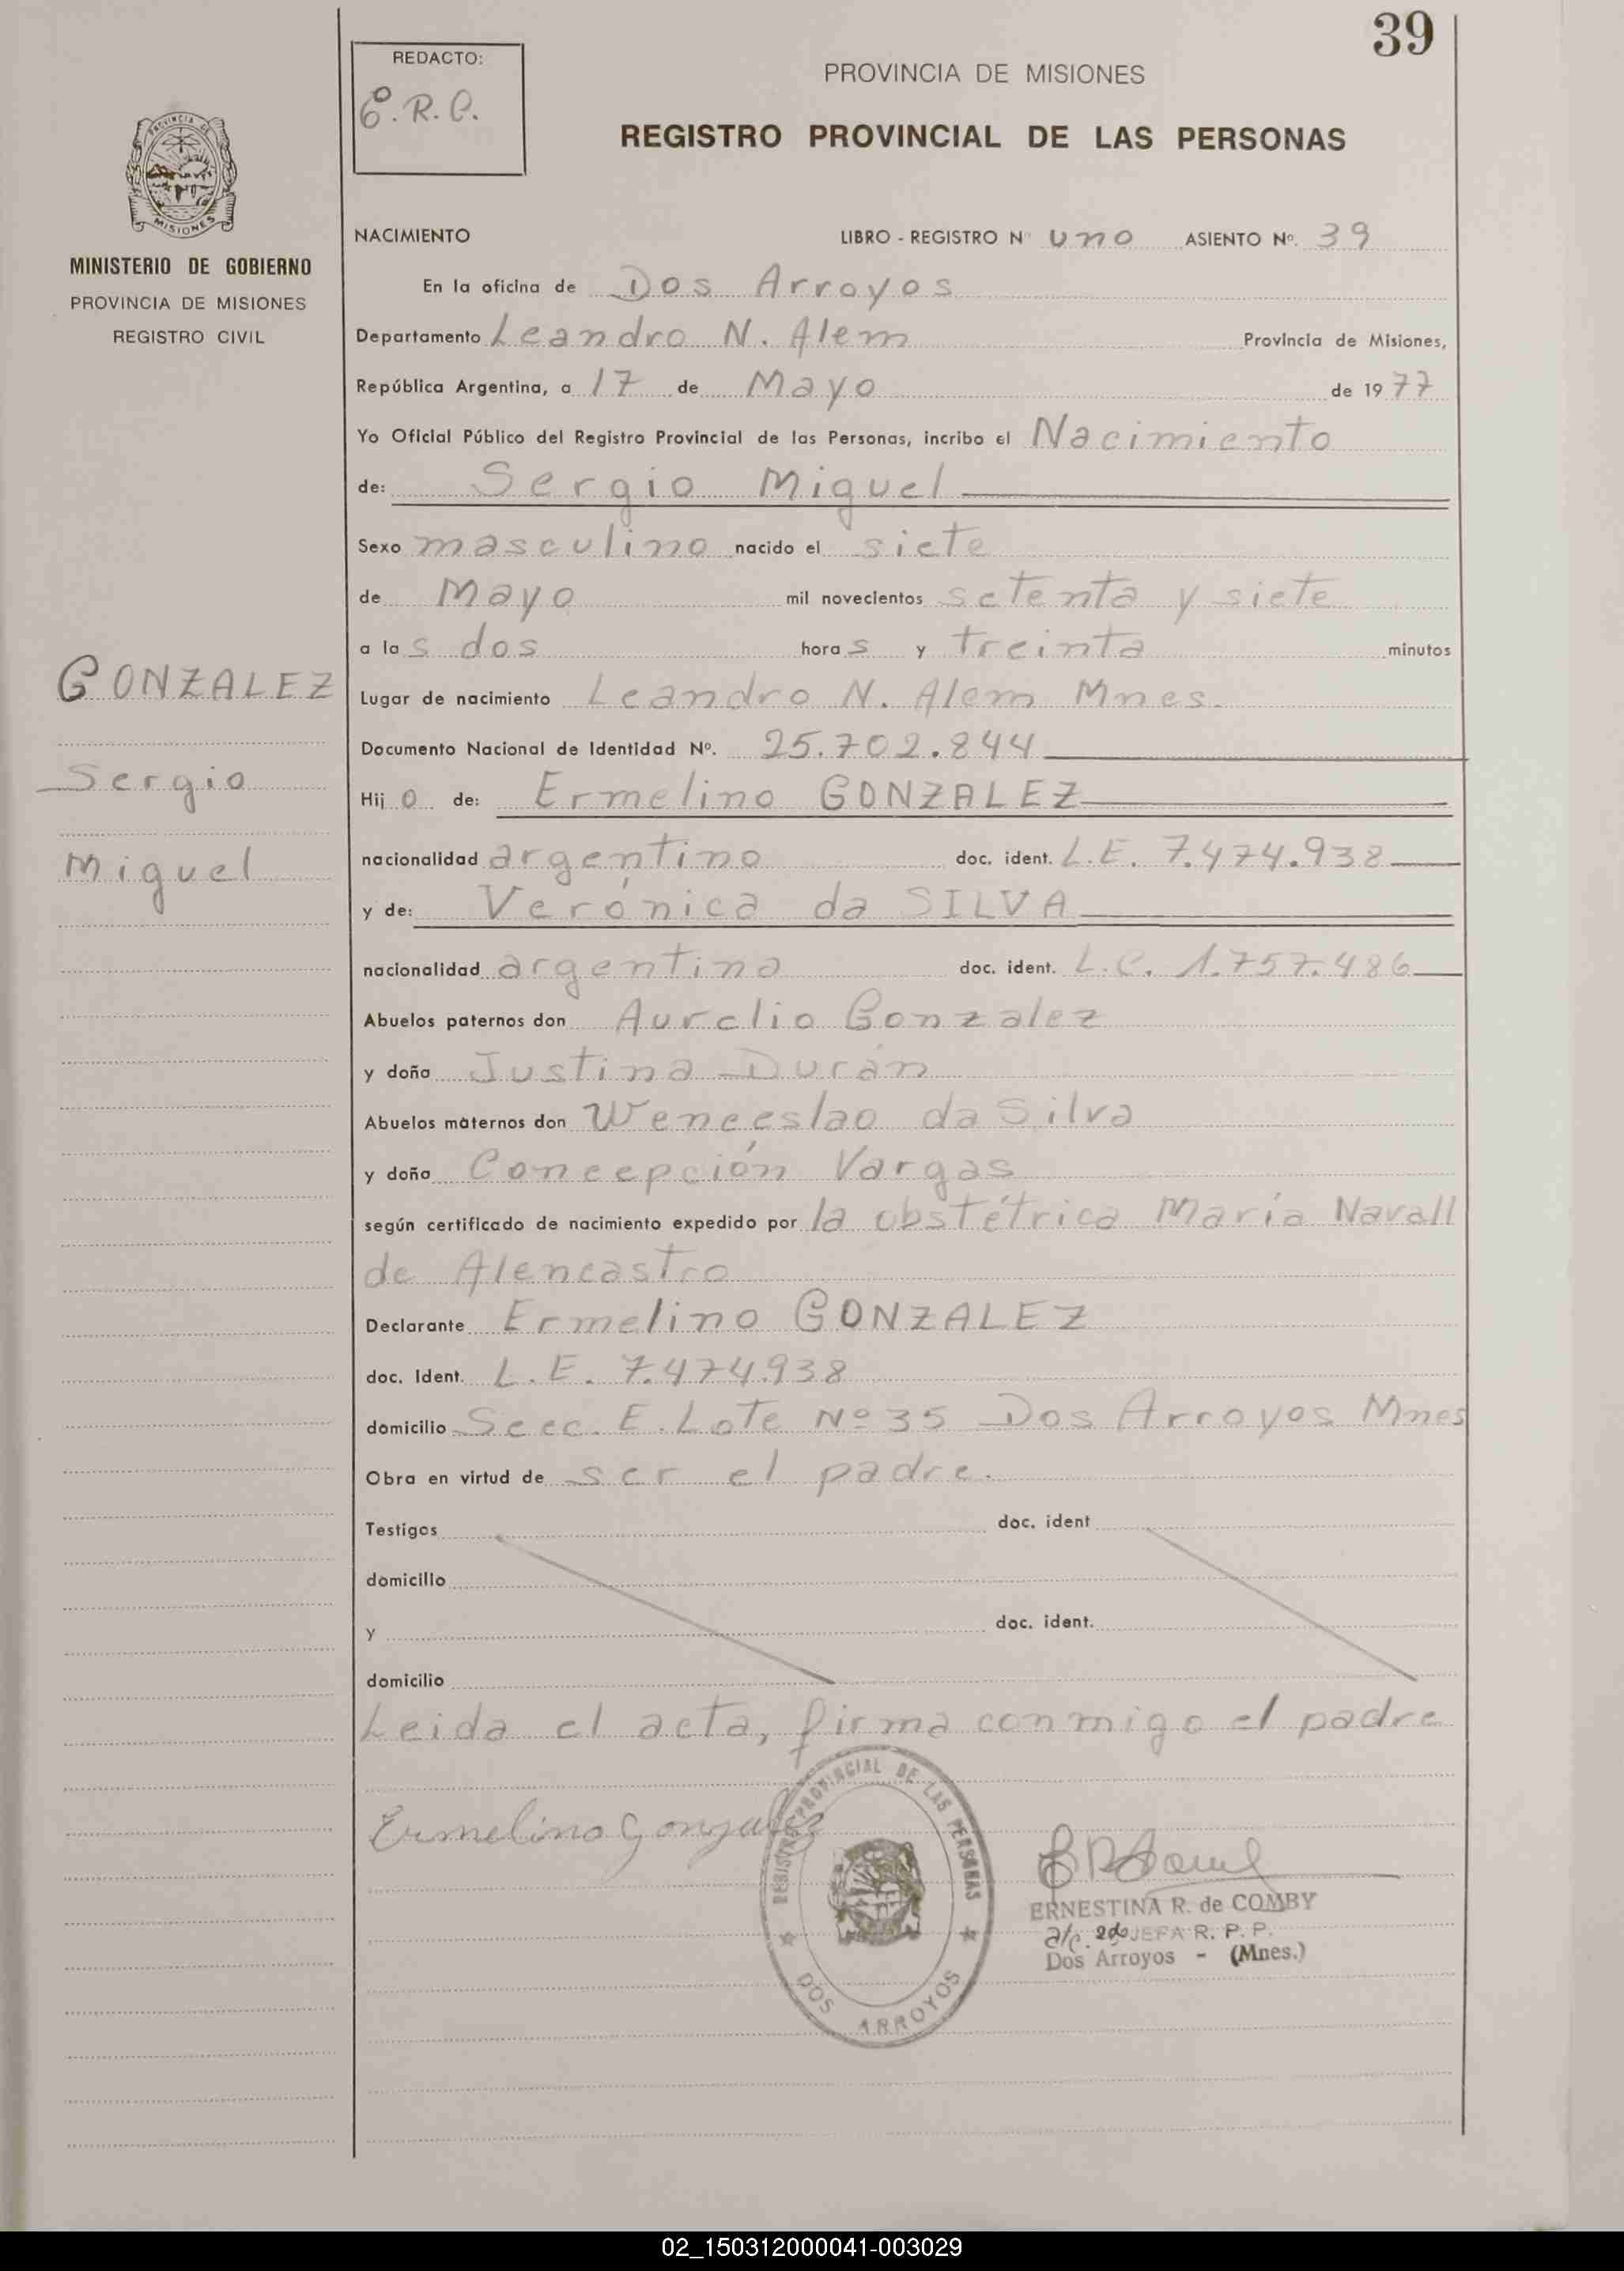 39
REDACTO:
E.R.C.
PROVINCIA DE MISIONES
REGISTRO PROVINCIAL DE LAS PERSONAS
PROVINCIA DE
MISIONES
MINISTERIO DE GOBIERNO
PROVINCIA DE MISIONES
REGISTRO CIVIL
GONZALEZ
Sergio
Miguel
NACIMIENTO LIBRO - REGISTRO Nº uno ASIENTO Nº. 39
En la oficina de Dos Arroyos
Departamento Leandro N. Alem Provincia de Misiones,
República Argentina, a 17 de Mayo de 1977
Yo Oficial Público del Registro Provincial de las Personas, incribo el Nacimiento
de: Sergio Miguel
Sexo masculino nacido el siete
de Mayo mil novecientos setenta y siete
a las dos horas y treinta minutos
Lugar de nacimiento Leandro N. Alem Mnes.
Documento Nacional de Identidad Nº. 25.702.844
Hijo de: Ermelino GONZALEZ
nacionalidad argentino doc. ident. L.E. 7.474.938
y de: Verónica da SILVA
nacionalidad argentina doc. ident. L.C. 1.757.486
Abuelos paternos don Aurelio Gonzalez
y doña Justina Durán
Abuelos maternos don Wenceslao da Silva
y doña Concepción Vargas
según certificado de nacimiento expedido por la obstétrica María Navall
de Alencastro
Declarante Ermelino GONZALEZ
doc. Ident. L.E. 7.474.938
domicilio Secc. E. Lote Nº 35 Dos Arroyos Mnes
Obra en virtud de ser el padre.
Testigos doc. ident
domicilio
y doc. ident.
domicilio
Leida el acta, firma conmigo el padre
Ermelino Gonzalez
REGISTRO PROVINCIAL DE LAS PERSONAS
DOS ARROYOS
ERNESTINA R. de COMBY
a/c. 2do JEFA R. P. P.
Dos Arroyos - (Mnes.)
02_150312000041-003029